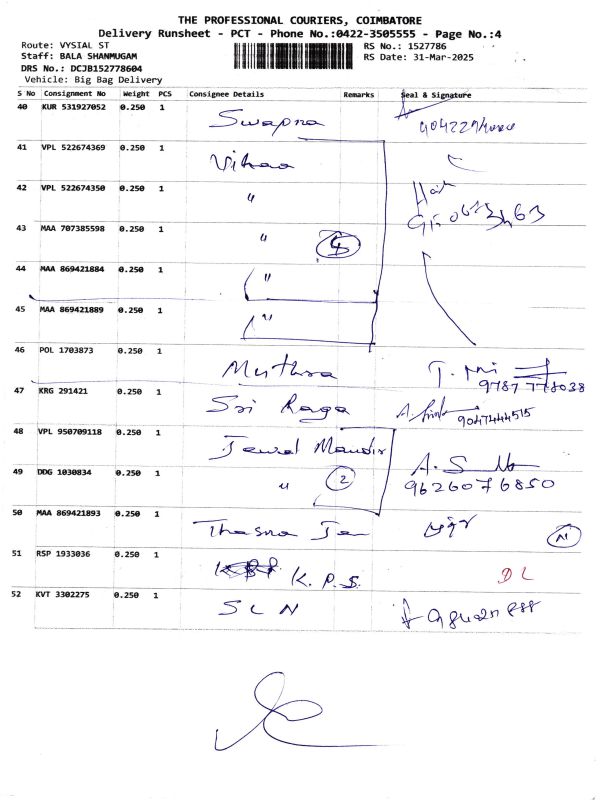 THE PROFESSIONAL COURIERS, COIMBATORE
Delivery Runsheet - PCT - Phone No.:0422-3505555 - Page No.:4
Route: VYSIAL ST
Staff: BALA SHANMUGAM
DRS No.: DCJB152778604
Vehicle: Big Bag Delivery
RS No.: 1527786
RS Date: 31-Mar-2025
S No Consignment No Weight PCS Consignee Details Remarks Seal & Signature
40 KUR 531927052 0.250 1 Swapna
41 VPL 522674369 0.250 1
42 VPL 522674350 0.250 1 "
43 MAA 707385598 0.250 1 "
44 MAA 869421884 0.250 1 "
45 MAA 869421889 0.250 1 "
46 POL 1703873 0.250 1 Muthra
9787778038
47 KRG 291421 0.250 1 Sri Raga 9047444515
48 VPL 950709118 0.250 1 Jewel Mandir
49 DDG 1030834 0.250 1 " 2 9626076850
50 MAA 869421893 0.250 1
51 RSP 1933036 0.250 1 K.P.S. DL
52 KVT 3302275 0.250 1 SLN